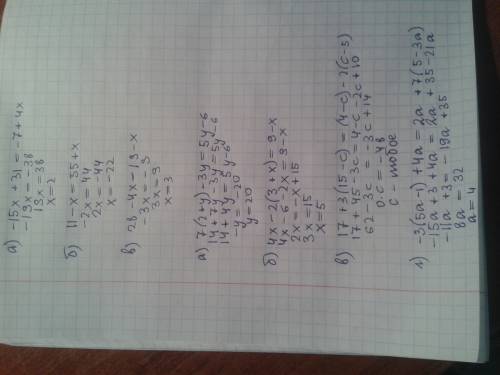 а) -15x + 31 = -7 + 4x
-19x = -38
19x = 38
x = 2
б) 11 - x = 55 + x
-2x = 44
2x = -44
x = -22
в) 28 - 4x = 19 - x
-3x = -9
3x = 9
x = 3
а) 7(2+y) - 3y = 5y - 6
14 + 7y - 3y = 5y - 6
14 + 4y = 5y - 6
-y = -20
y = 20
б) 4x - 2(3+x) = 9 - x
4x - 6 - 2x = 9 - x
2x = -x + 15
3x = 15
x = 5
в) 17 + 3(15-c) = (4-c) - 2(c-5)
17 + 45 - 3c = 4 - c - 2c + 10
62 - 3c = -3c + 14
0·c = -48
c - любое
г) -3(5a-1) + 4a = 2a + 7(5-3a)
-15a + 3 + 4a = 2a + 35 - 21a
-11a + 3 = -19a + 35
8a = 32
a = 4